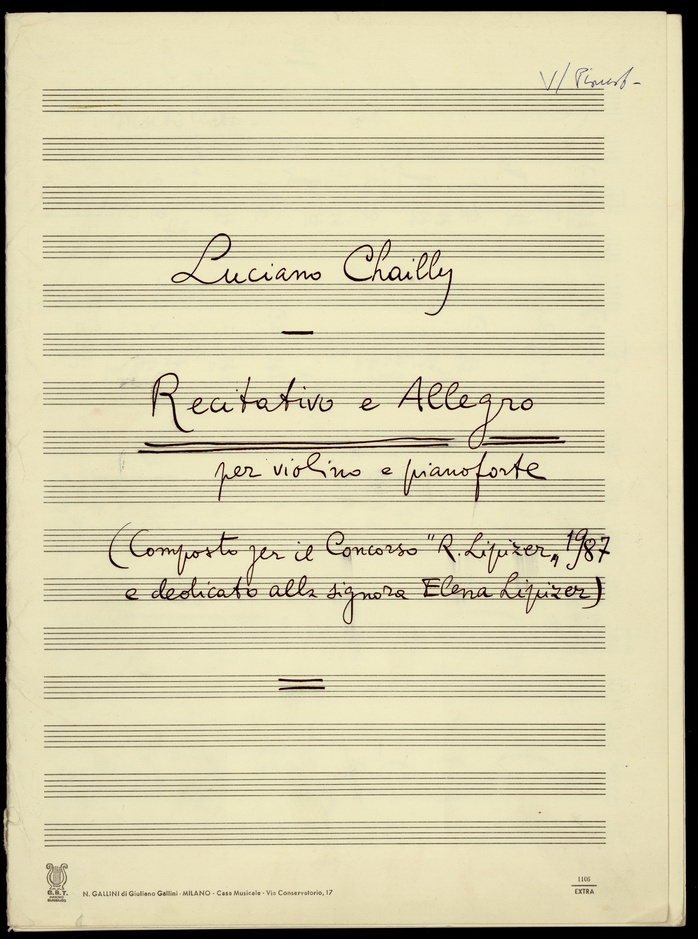 V/
Luciano Chailly
Recitativo e Allegro
per violino e pianoforte
(Composto per il Concorso "R. Lipizer„ 1987
e dedicato alla signora Elena Lipizer)
G.B.T.
N. GALLINI di Giuliano Gallini - MILANO - Casa Musicale - Via Conservatorio, 17
1106
EXTRA